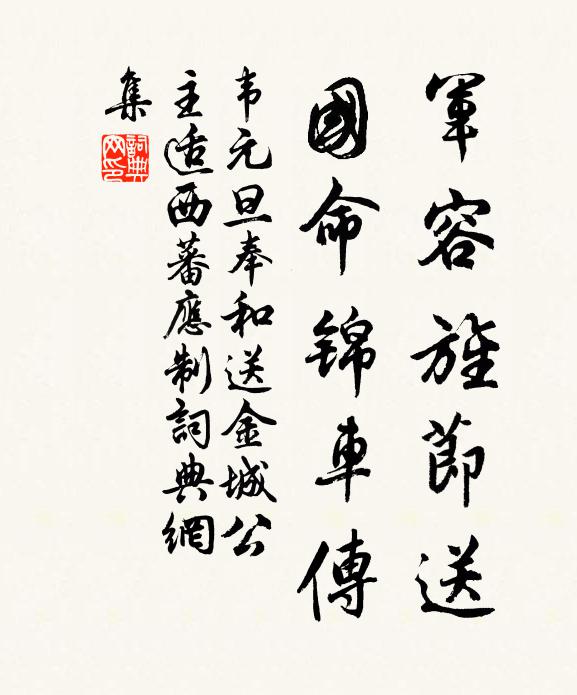 軍容旌節送
國命錦車傳
韦元旦奉和送金城公
主适西蕃應制詞典網
集
詞典
网印